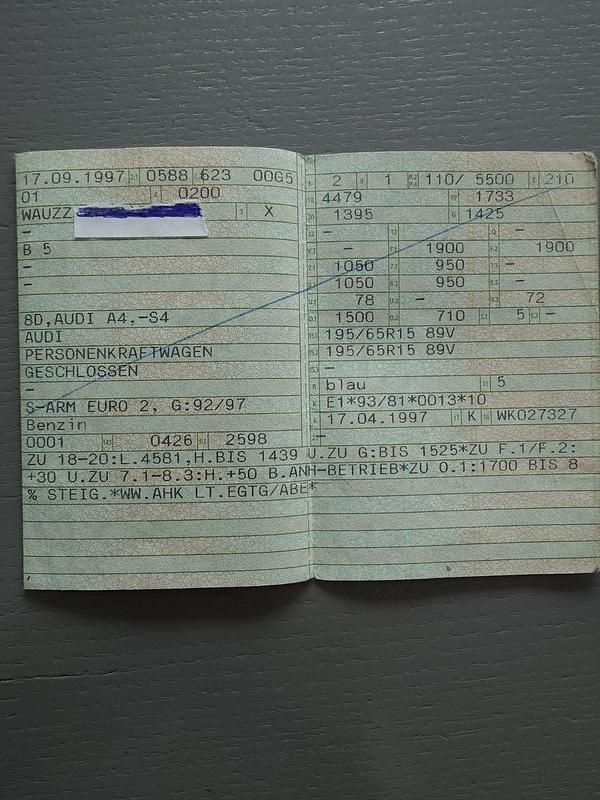 17.09.1997 2.1 0588 623 00G5
01 0200
WAUZZ X
–
B 5
–
–
8D,AUDI A4,-S4
AUDI
PERSONENKRAFTWAGEN
GESCHLOSSEN
–
S-ARM EURO 2, G:92/97
Benzin
0001 0426 P.1 2598
2 9 1 110/ 5500 T 210
18 4479 19 1733
20 1395 G 1425
– –
– 1900 1900
1050 950 –
1050 950 –
78 – 72
1500 710 5 –
195/65R15 89V
195/65R15 89V
–
R blau 11 5
K E1*93/81*0013*10
6 17.04.1997 17 K 16 WK027327
–
ZU 18-20:L.4581,H.BIS 1439 U.ZU G:BIS 1525*ZU F.1/F.2:
+30 U.ZU 7.1-8.3:H.+50 B.ANH-BETRIEB*ZU O.1:1700 BIS 8
% STEIG.*WW.AHK LT.EGTG/ABE*